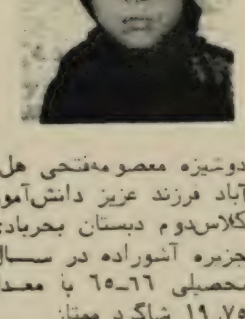 دوشیزه معصومه‌فتحی هل
آباد فرزند عزیز دانش‌آمو
کلاس‌دوم دبستان بحربادی
جزیره آشوراده در ســـال
تحصیلی ۶۶ــ۶۵ با معــد
۱۹,۷۵ شاگرد ممتاز